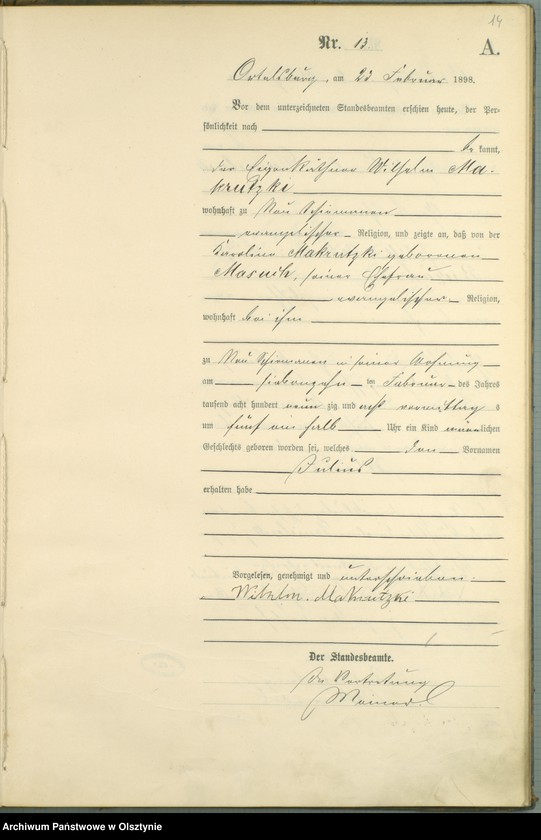 14
Nr. 13.
A.
Ortelsburg, am 23 Februar 1898.
Vor dem unterzeichneten Standesbeamten erschien heute, der Per-
sönlichkeit nach
be kannt,
der Eigenkäthner Wilhelm Ma-
krutzki
wohnhaft zu Neu Schiemanen
evangelischer Religion, und zeigte an, daß von der
Karoline Makrutzki geborenen
Masuch, seiner Ehefrau
evangelischer Religion,
wohnhaft bei ihm
zu Neu Schiemanen in seiner Wohnung
am siebenzehn ten Februar des Jahres
tausend acht hundert neun zig und acht vormittag s
um fünf ein halb Uhr ein Kind männlichen
Geschlechts geboren worden sei, welches den Vornamen
Julius
erhalten habe
Vorgelesen, genehmigt und unterschrieben.
Wilhelm Makrutzki
Der Standesbeamte.
In Vertretung
Archiwum Państwowe w Olsztynie